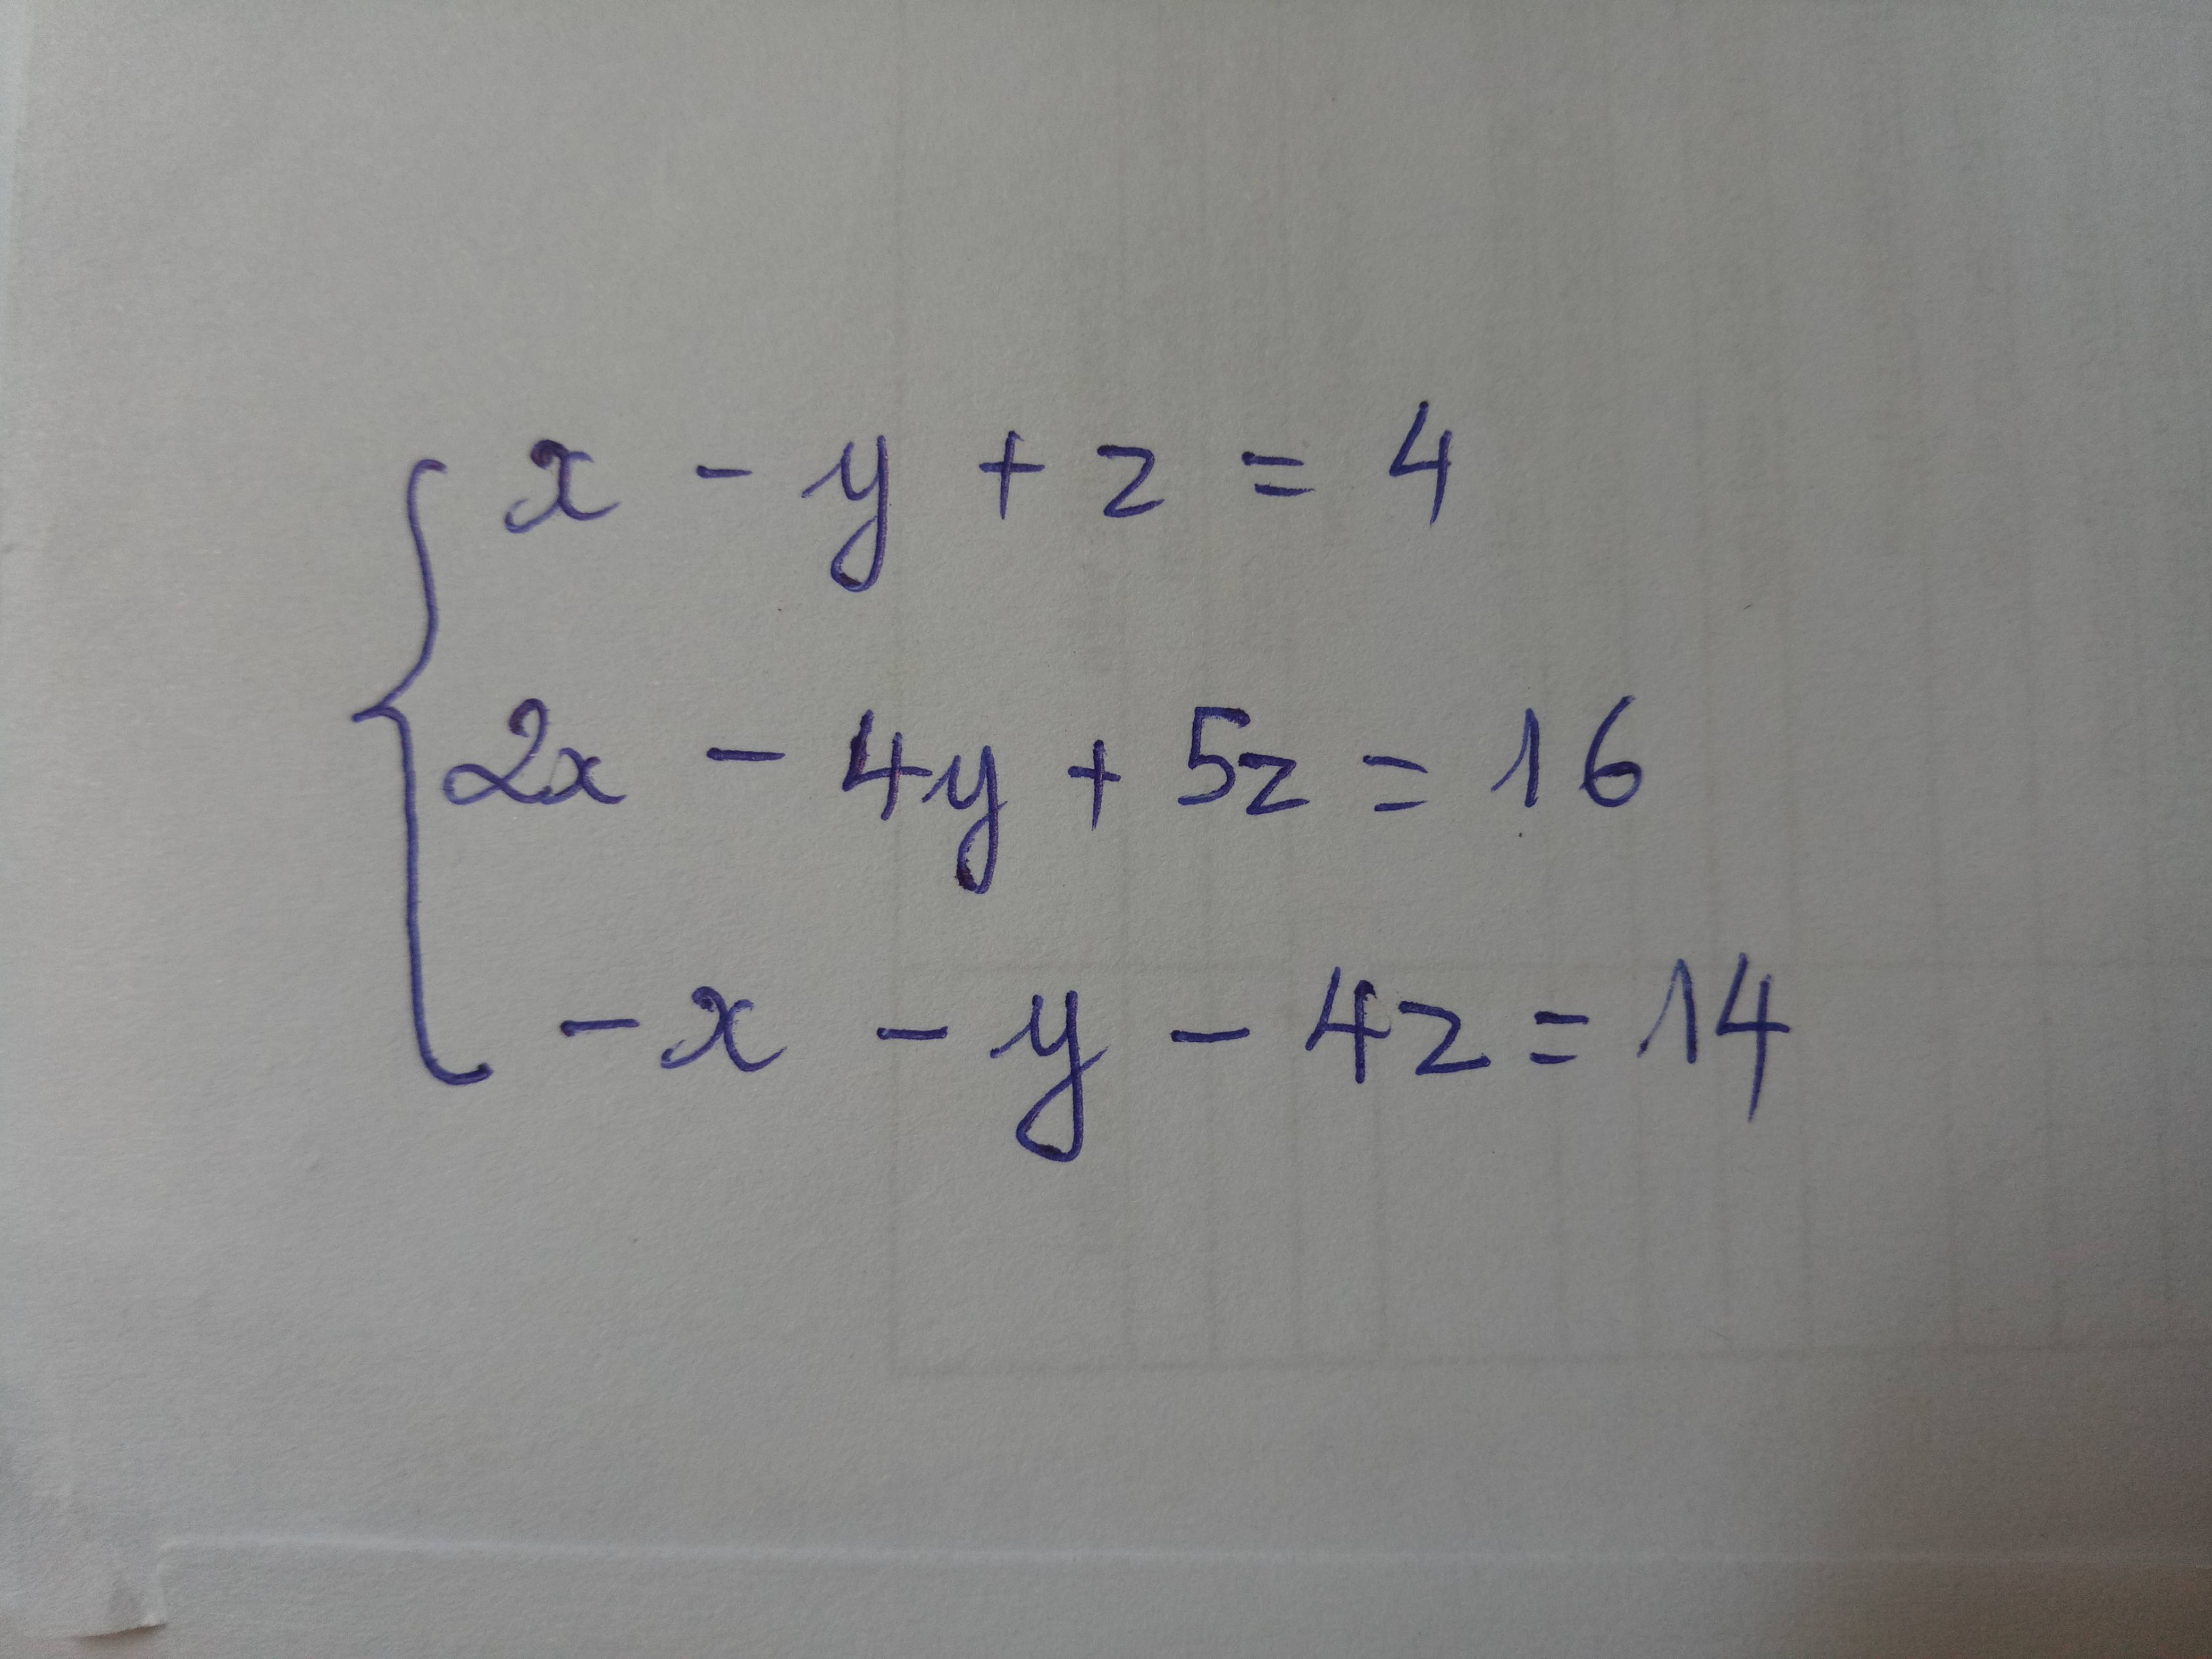 x - y + z = 4
2x - 4y + 5z = 16
-x - y - 4z = 14